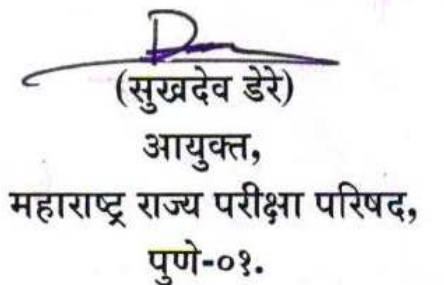 (सुखदेव डेरे)
आयुक्त,
महाराष्ट्र राज्य परीक्षा परिषद,
पुणे-०१.